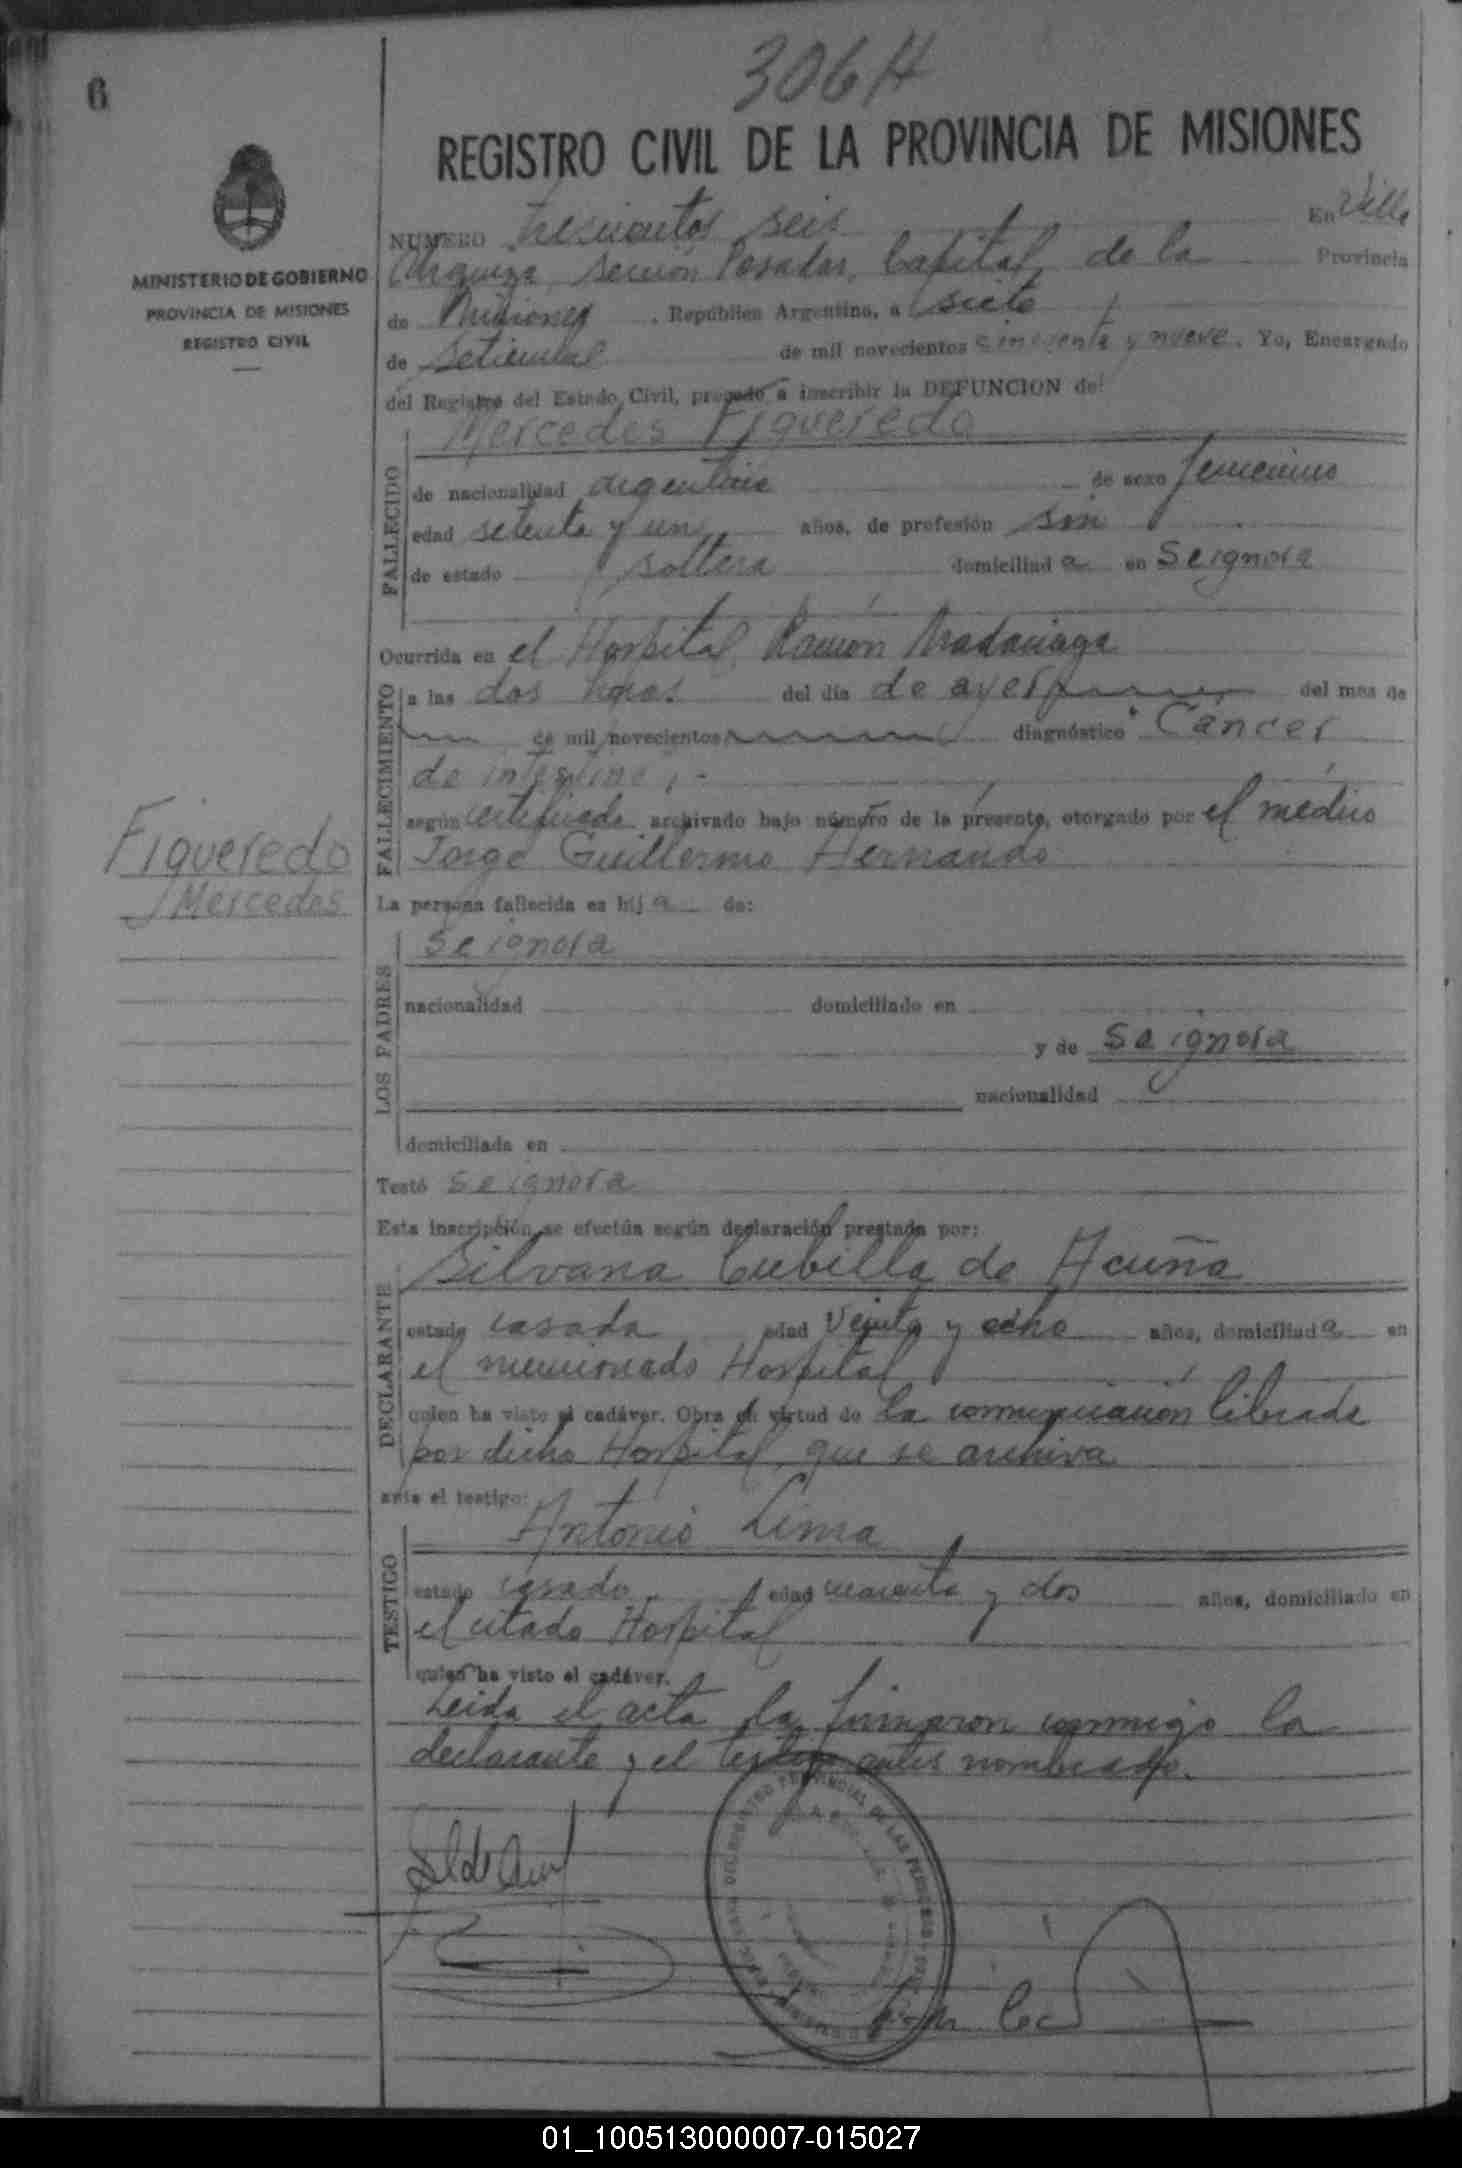 6
306 H
REGISTRO CIVIL DE LA PROVINCIA DE MISIONES
MINISTERIO DE GOBIERNO
PROVINCIA DE MISIONES
REGISTRO CIVIL
NUMERO trescientos seis En Villa
Urquiza, sección Posadas, Capital de la Provincia
de Misiones, República Argentina, a siete
de setiembre de mil novecientos cincuenta y nueve. Yo, Encargado
del Registro del Estado Civil, procedo a inscribir la DEFUNCION de:
Mercedes Figueredo
FALLECIDO
de nacionalidad argentina de sexo femenino
edad setenta y un años, de profesión sin
de estado soltera domiciliada en Se ignora
Ocurrida en el Hospital Ramón Madariaga
FALLECIMIENTO
a las dos horas del día de ayer del mes de
de mil novecientos diagnóstico Cáncer
de intestino,-
según certificado archivado bajo número de la presente, otorgado por el médico
Jorge Guillermo Hernando
Figueredo
Mercedes
La persona fallecida es hija de:
LOS PADRES
Se ignora
nacionalidad domiciliado en
y de Se ignora
nacionalidad
domiciliada en
Testó Se ignora
Esta inscripción se efectúa según declaración prestada por:
DECLARANTE
Silvana Cubilla de Acuña
estado casada edad veinte y ocho años, domiciliada en
el mencionado Hospital
quien ha visto el cadáver. Obra en virtud de la comunicación librada
por dicho Hospital, que se archiva
ante el testigo:
TESTIGO
Antonio Lima
estado casado edad cuarenta y dos años, domiciliado en
el citado Hospital
quien ha visto el cadáver.
Leida el acta la firmaron conmigo la
declarante y el testigo antes nombrado.
01_100513000007-015027